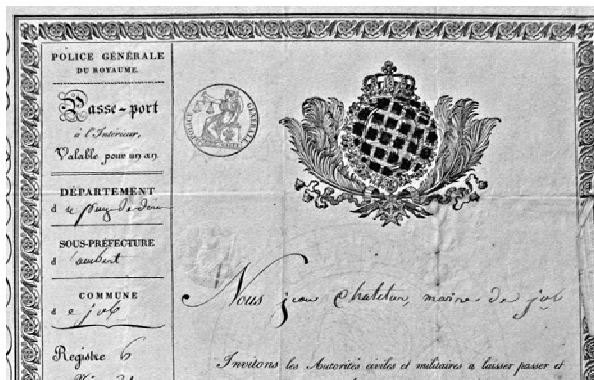 POLICE GÉNÉRALE
DU ROYAUME.
Passe-port
à l'Intérieur,
Valable pour un an
DÉPARTEMENT
d de puy-de-dome
SOUS-PRÉFECTURE
d ambert
COMMUNE
d e job
Registre 6
POLICE GÉNÉRALE
Nous jean Chatelun, maire de job
Invitons les Autorités civiles et militaires à laisser passer et